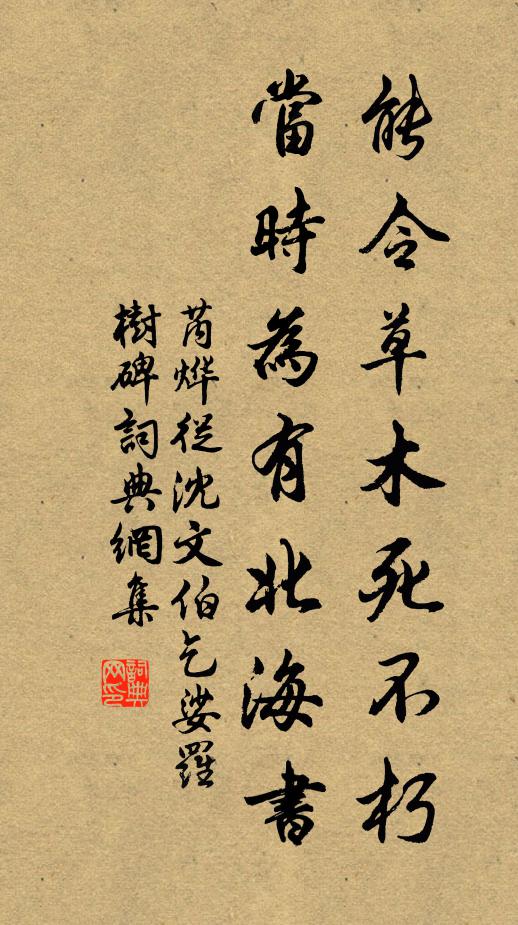 能令草木死不朽
當時為有北海書
芮烨從沈文伯乞娑羅
樹碑詞典網集
詞典网印